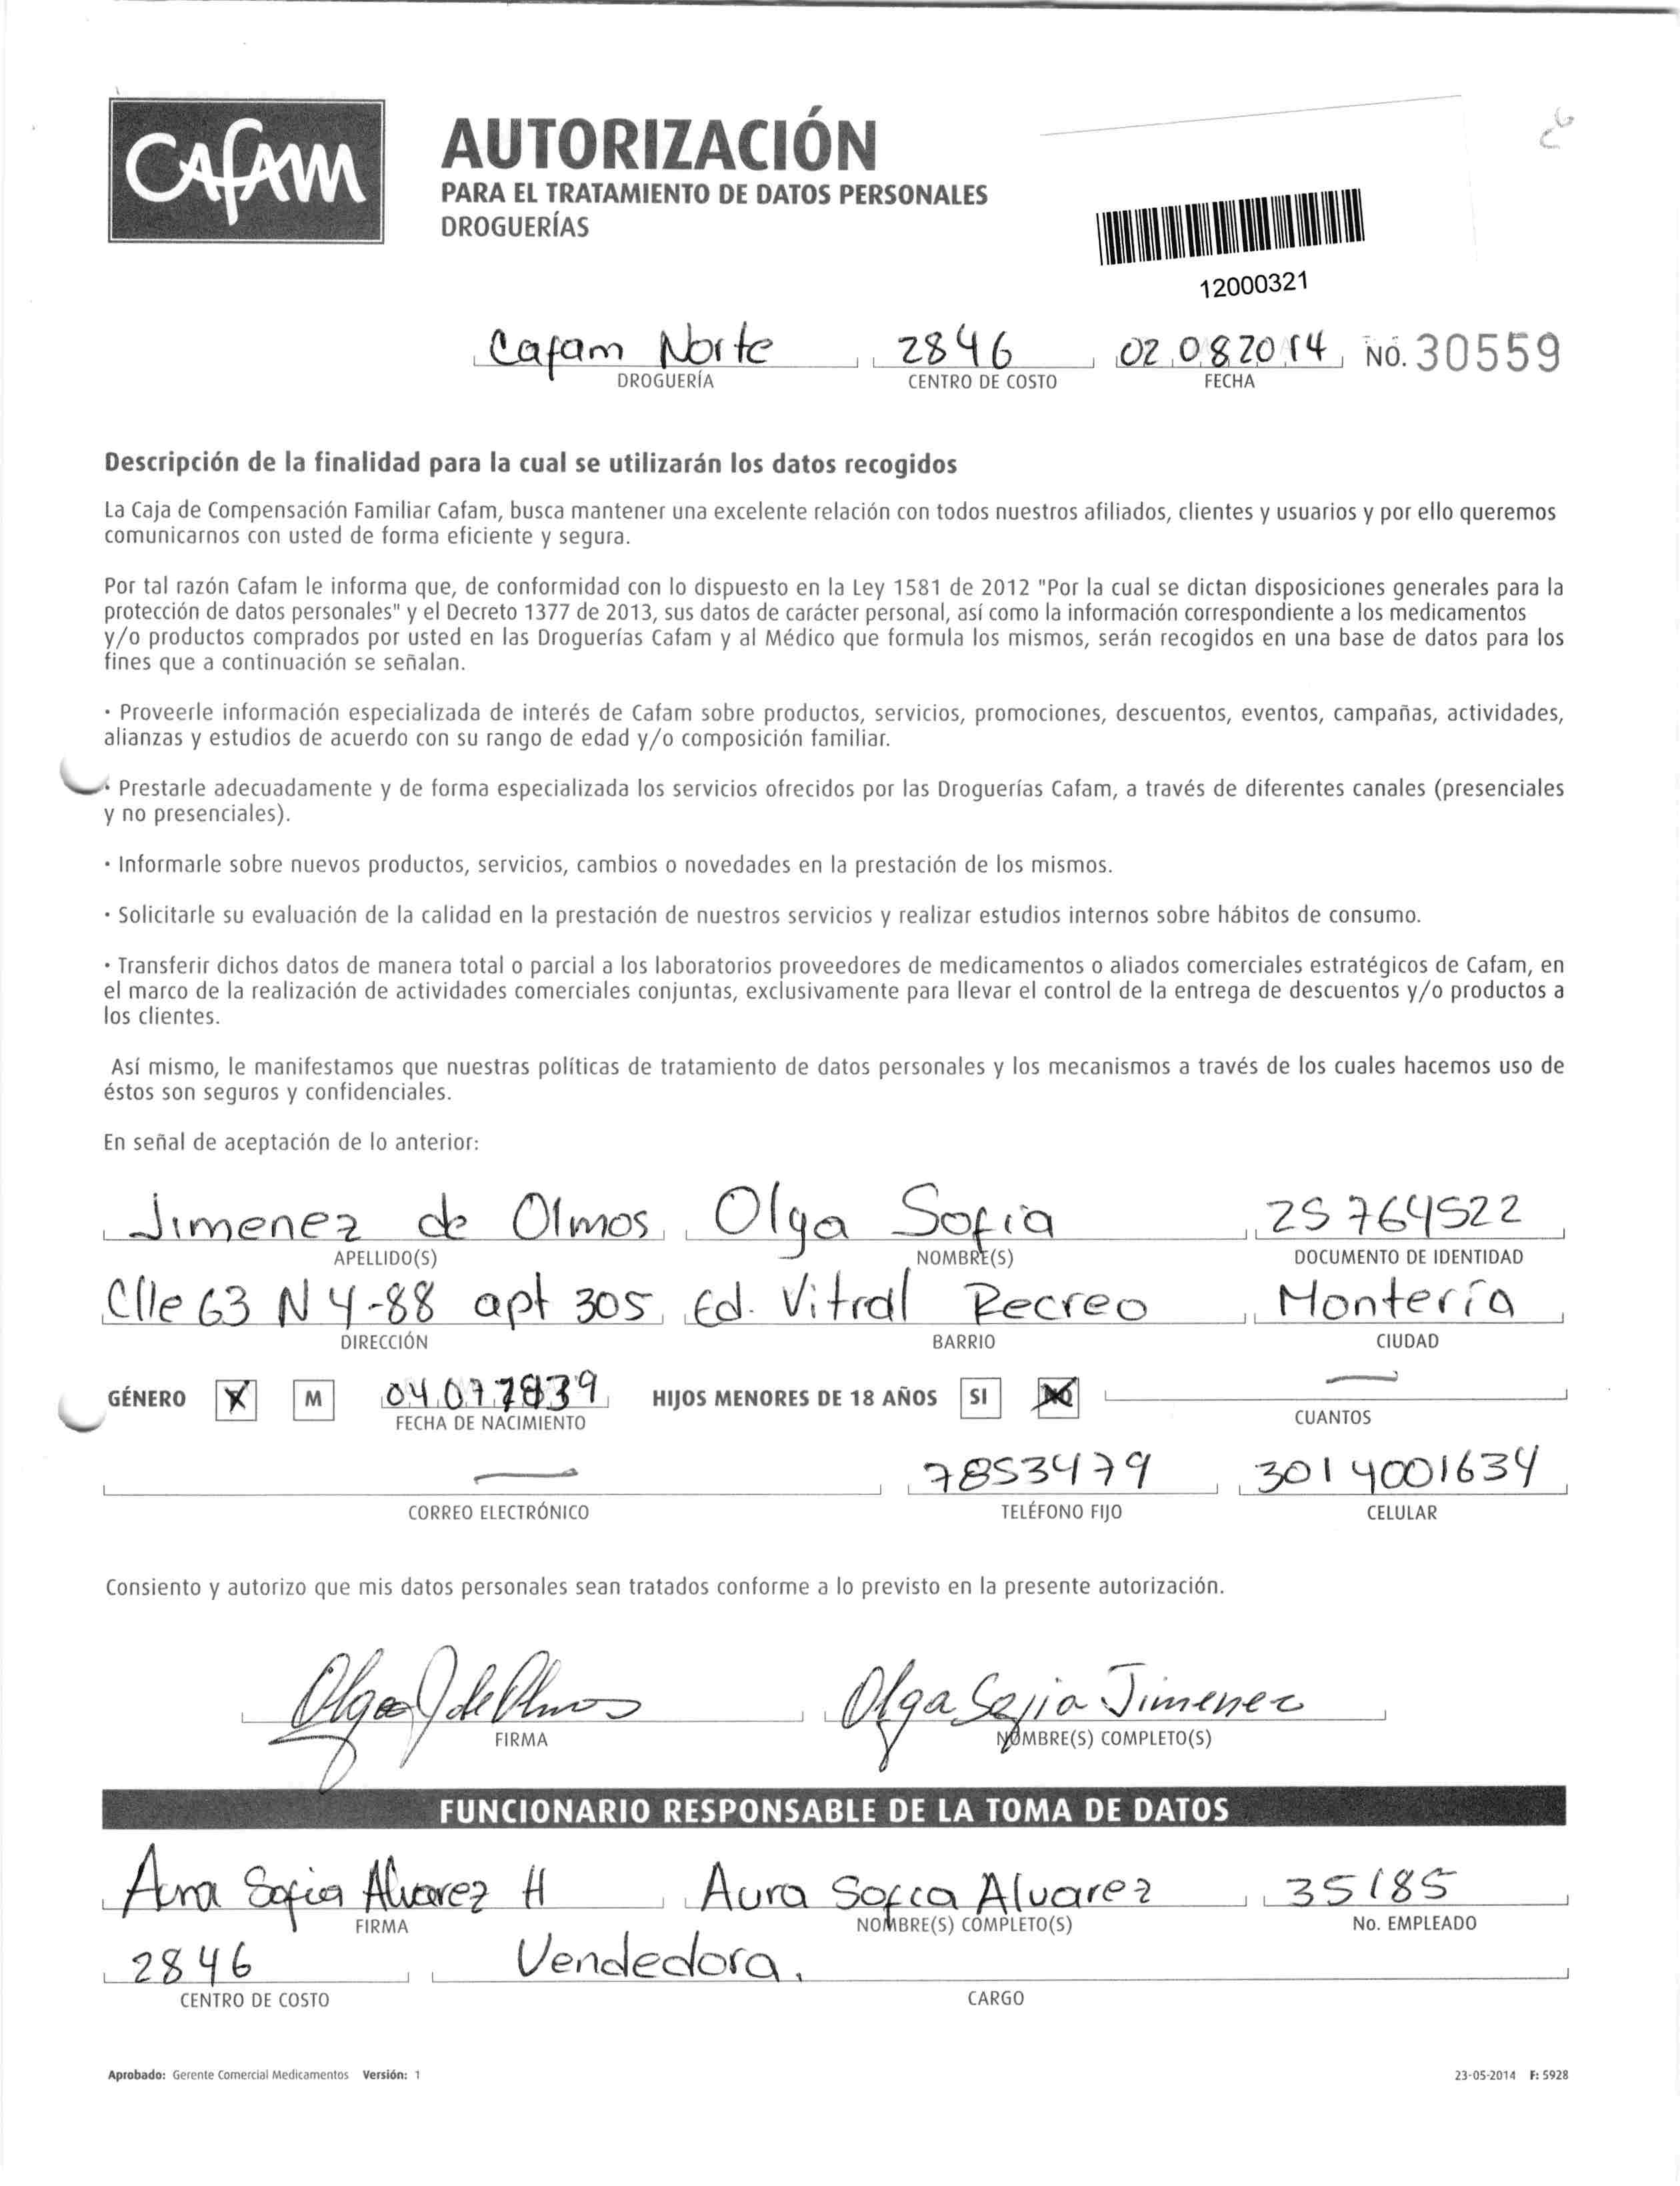 CAFAM
AUTORIZACIÓN
PARA EL TRATAMIENTO DE DATOS PERSONALES
DROGUERÍAS
12000321
Cafam Norte 2846 02 08 2014 NO. 30559
DROGUERÍA CENTRO DE COSTO FECHA
Descripción de la finalidad para la cual se utilizarán los datos recogidos
La Caja de Compensación Familiar Cafam, busca mantener una excelente relación con todos nuestros afiliados, clientes y usuarios y por ello queremos
comunicarnos con usted de forma eficiente y segura.
Por tal razón Cafam le informa que, de conformidad con lo dispuesto en la Ley 1581 de 2012 "Por la cual se dictan disposiciones generales para la
protección de datos personales" y el Decreto 1377 de 2013, sus datos de carácter personal, así como la información correspondiente a los medicamentos
y/o productos comprados por usted en las Droguerías Cafam y al Médico que formula los mismos, serán recogidos en una base de datos para los
fines que a continuación se señalan.
· Proveerle información especializada de interés de Cafam sobre productos, servicios, promociones, descuentos, eventos, campañas, actividades,
alianzas y estudios de acuerdo con su rango de edad y/o composición familiar.
· Prestarle adecuadamente y de forma especializada los servicios ofrecidos por las Droguerías Cafam, a través de diferentes canales (presenciales
y no presenciales).
· Informarle sobre nuevos productos, servicios, cambios o novedades en la prestación de los mismos.
· Solicitarle su evaluación de la calidad en la prestación de nuestros servicios y realizar estudios internos sobre hábitos de consumo.
· Transferir dichos datos de manera total o parcial a los laboratorios proveedores de medicamentos o aliados comerciales estratégicos de Cafam, en
el marco de la realización de actividades comerciales conjuntas, exclusivamente para llevar el control de la entrega de descuentos y/o productos a
los clientes.
Así mismo, le manifestamos que nuestras políticas de tratamiento de datos personales y los mecanismos a través de los cuales hacemos uso de
éstos son seguros y confidenciales.
En señal de aceptación de lo anterior:
Jimenez de Olmos Olga Sofia 25764522
APELLIDO(S) NOMBRE(S) DOCUMENTO DE IDENTIDAD
Clle 63 N 4-88 apt 305 Ed. Vitral Recreo Montería
DIRECCIÓN BARRIO CIUDAD
GÉNERO X M 04 07 1939 HIJOS MENORES DE 18 AÑOS SI NO —
FECHA DE NACIMIENTO CUANTOS
— 7853479 3014001634
CORREO ELECTRÓNICO TELÉFONO FIJO CELULAR
Consiento y autorizo que mis datos personales sean tratados conforme a lo previsto en la presente autorización.
Olga J de Olmos Olga Sofia Jimenez
FIRMA NOMBRE(S) COMPLETO(S)
FUNCIONARIO RESPONSABLE DE LA TOMA DE DATOS
Aura Sofia Alvarez H Aura Sofia Alvarez 35185
FIRMA NOMBRE(S) COMPLETO(S) No. EMPLEADO
2846 Vendedora.
CENTRO DE COSTO CARGO
Aprobado: Gerente Comercial Medicamentos Versión: 1 23-05-2014 F: 5928